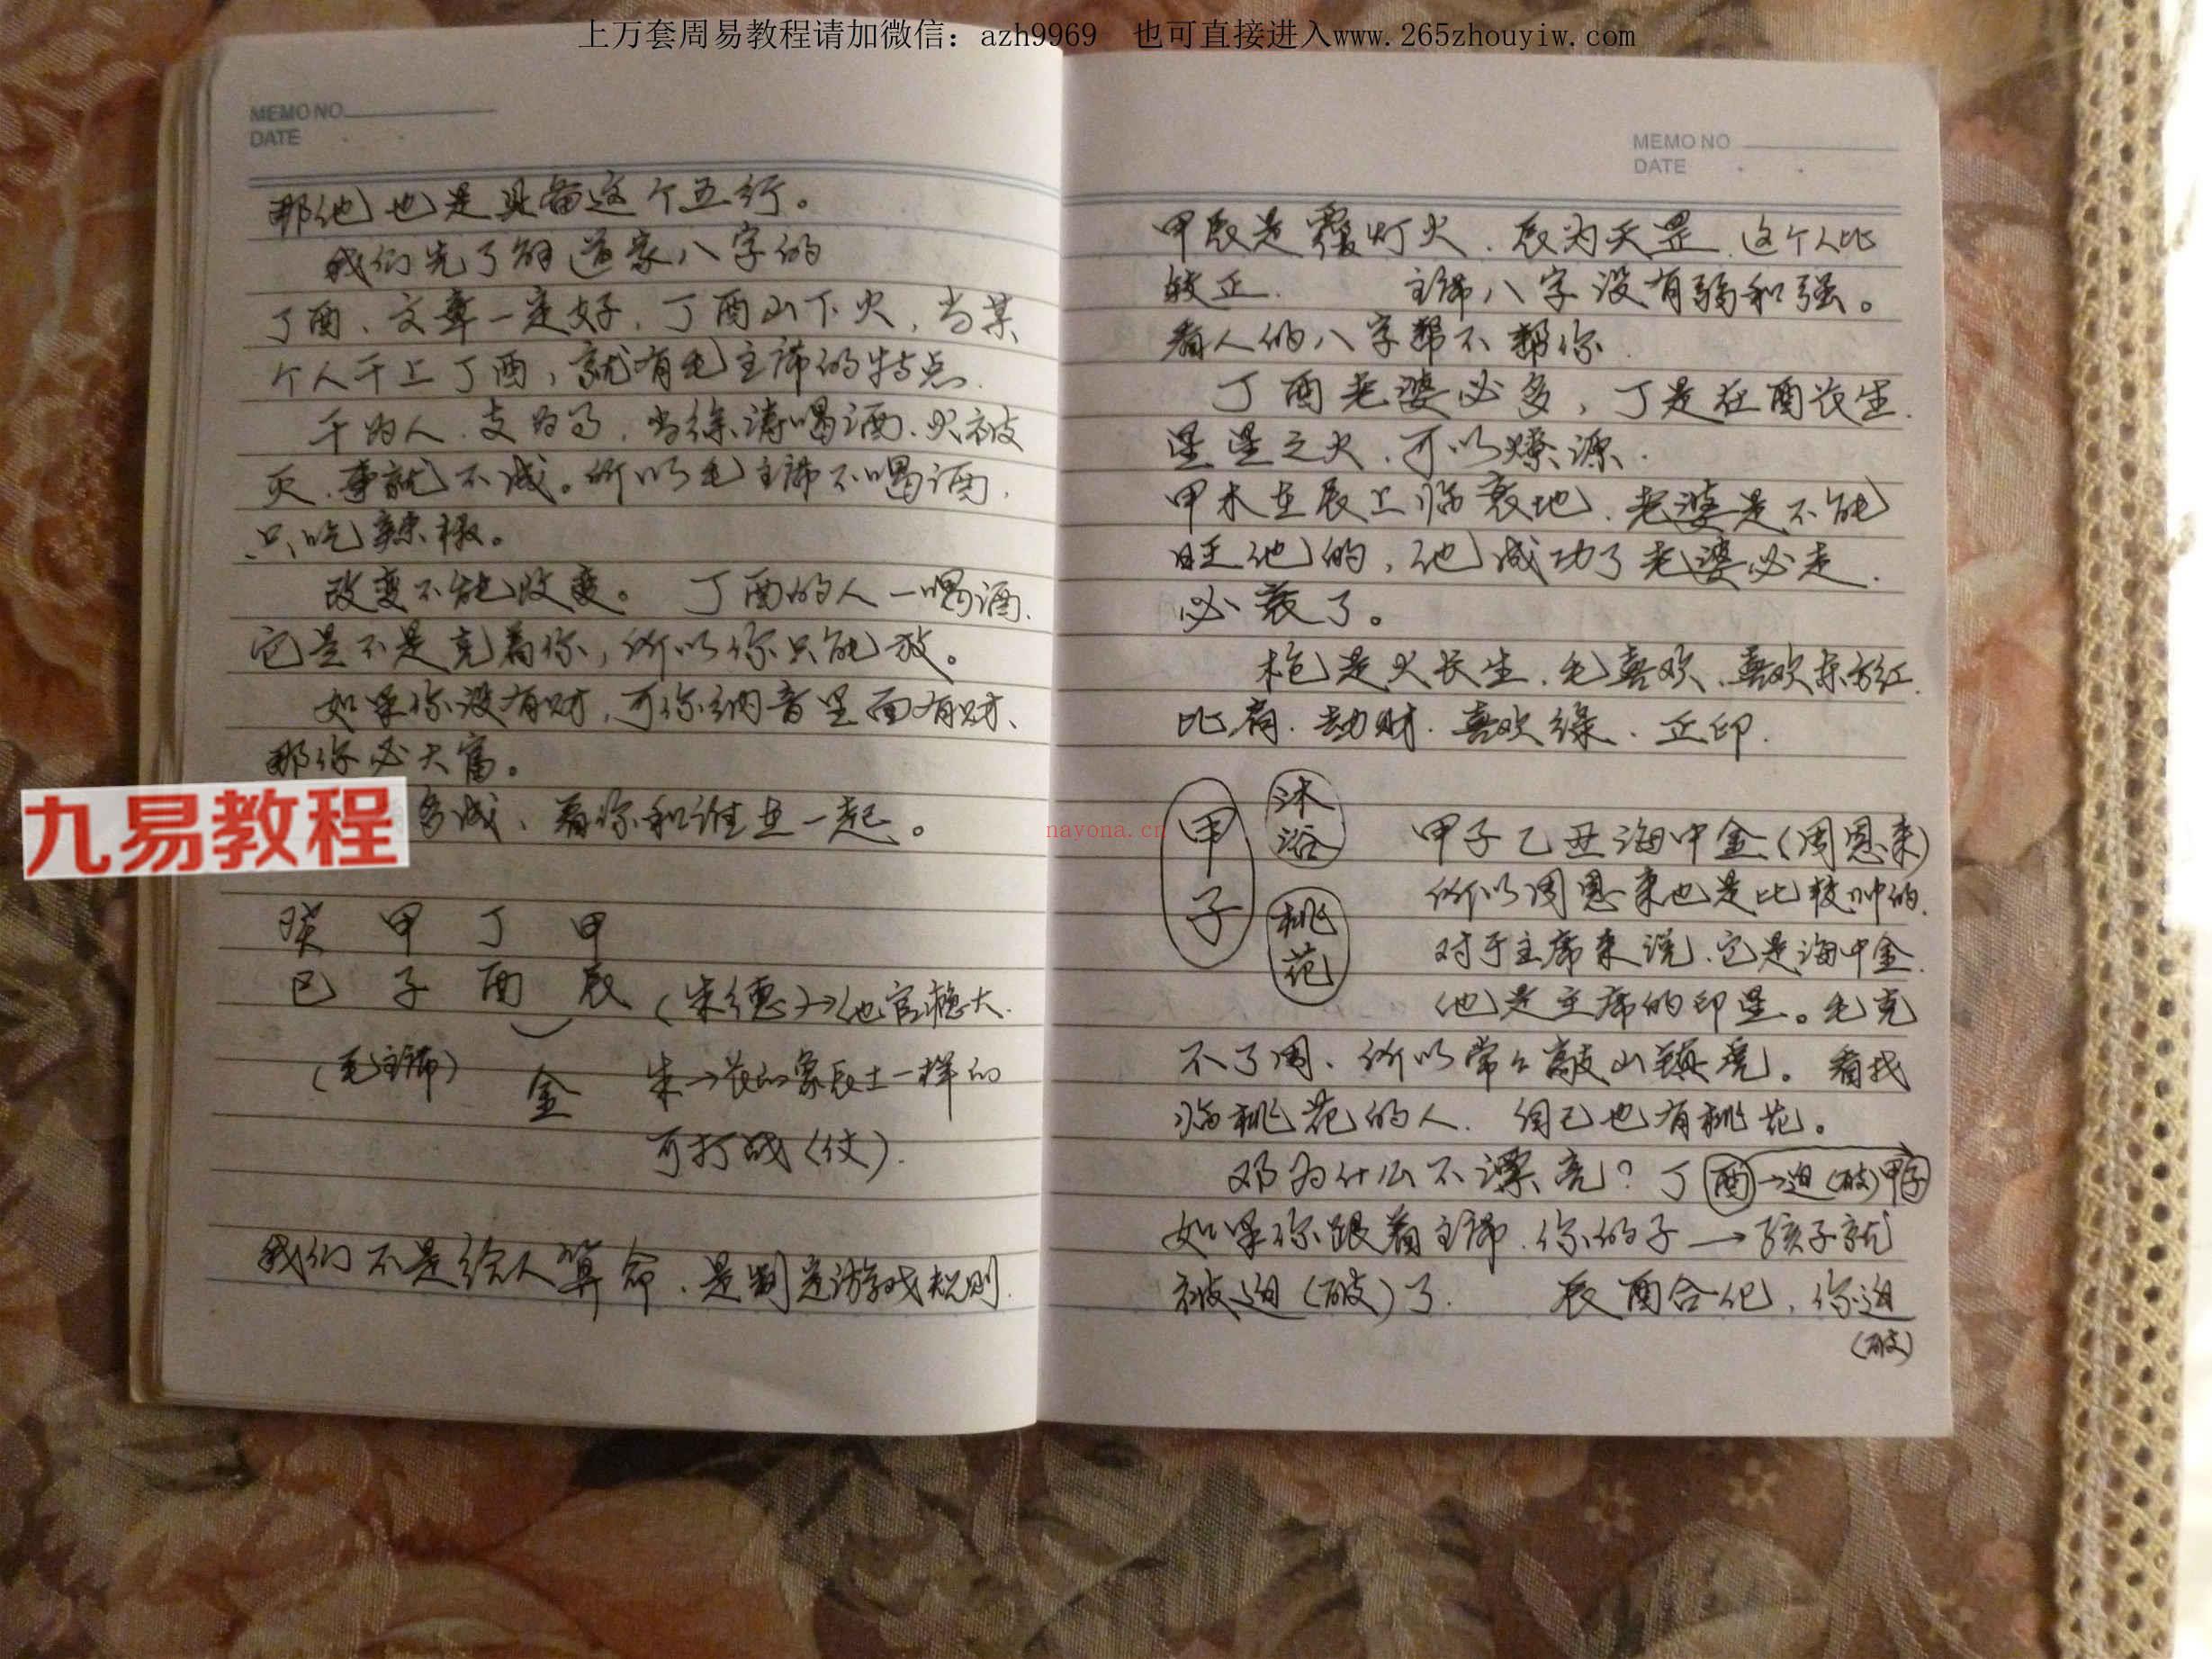 上万套周易教程请加微信：azh9969 也可直接进入www.265zhouyiw.com
MEMO NO
DATE
那他也是具备这个五行。
我们先了解道家八字的
丁酉、文章一定好，丁酉山下火，当某
个人干上丁酉，就有毛主席的特点.
干为人.支为马，当徐涛喝酒、火被
灭.事就不成。所以毛主席不喝酒.
只吃辣椒。
改变不能改变。 丁酉的人一喝酒.
它是不是克着你，所以你只能放。
如果你没有财，可你纳音里面有财、
那你必大富。
九易教程
多成、看你和谁在一起。
癸 甲 丁 甲
巳 子 酉 辰 (朱德)→他官稳大.
(毛主席) 金 朱→长的象辰土一样的
可打战(仗).
我们不是给人算命.是判定游戏规则.
MEMO NO
DATE
甲辰是覆灯火.辰为天罡.这个人比
较正. 主席八字没有弱和强。
看人的八字帮不帮你.
丁酉老婆必多，丁是在酉长生.
星星之火.可以燎源.
甲木在辰上临衰地.老婆是不能
旺他的，他成功了老婆必走.
必衰了。
枪是火长生.毛喜欢.喜欢东方红.
比肩.劫财.喜欢绿.正印.
nayona.cn
甲子
沐浴
桃花
甲子乙丑海中金(周恩来)
所以周恩来也是比较帅的.
对于主席来说.它是海中金.
他是主席的印星。毛克
不了周、所以常々敲山镇虎。看找
临桃花的人. 自己也有桃花。
邓为什么不漂亮？丁酉→迫(破)甲子
如果你跟着主席.你的子→孩子就
被迫(破)了. 辰酉合化，你迫
(破)